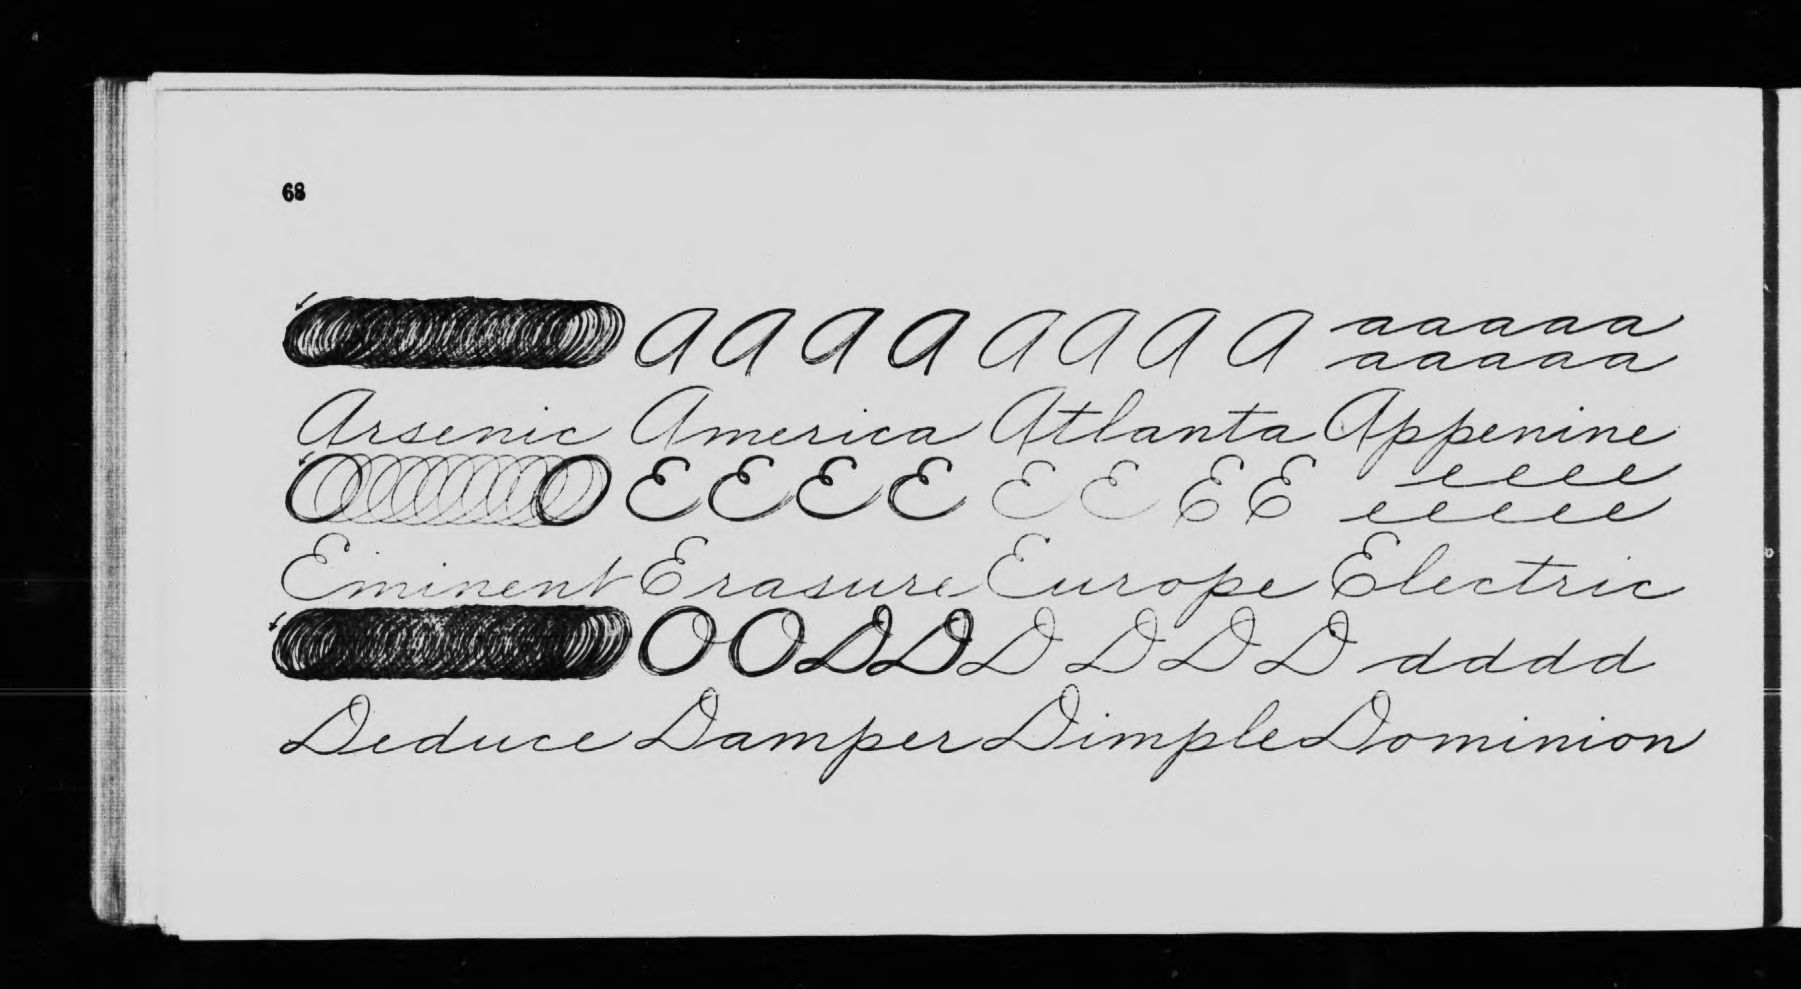 68
A A A A A A A A a a a a a
a a a a a
Arsenic America Atlanta Appenine
O O E E E E E E E E e e e e
e e e e e
Eminent Erasure Europe Electric
O O D D D D D D d d d d
Deduce Damper Dimple Dominion